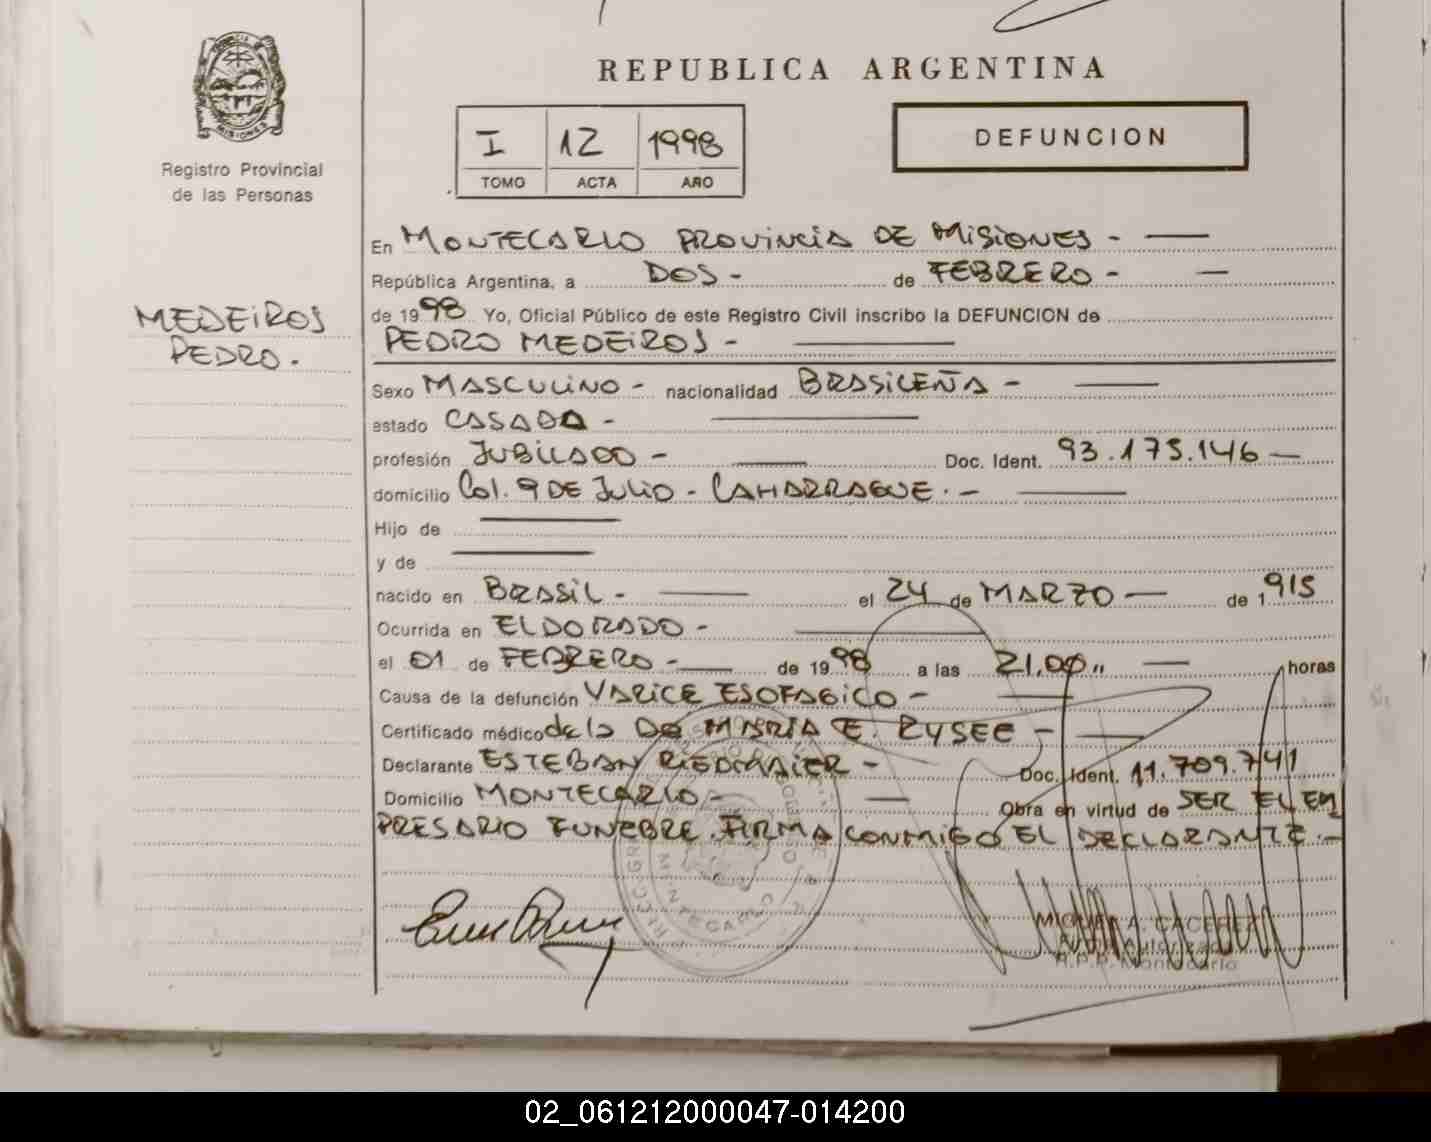 REPUBLICA ARGENTINA
MISIONES
Registro Provincial
de las Personas
I 12 1998
TOMO ACTA AÑO
DEFUNCION
MEDEIROS
PEDRO.
En MONTECARLO PROVINCIA DE MISIONES -
República Argentina, a DOS - de FEBRERO -
de 1998 Yo, Oficial Público de este Registro Civil inscribo la DEFUNCION de
PEDRO MEDEIROS -
Sexo MASCULINO - nacionalidad BRASILEÑA -
estado CASADO -
profesión JUBILADO - Doc. Ident. 93.175.146 -
domicilio Col. 9 DE JULIO - CAHARRAGUE. -
Hijo de
y de
nacido en BRASIL - el 24 de MARZO - de 1915
Ocurrida en ELDORADO -
el 01 de FEBRERO - de 1998 a las 21,00 horas
Causa de la defunción VARICE ESOFAGICO -
Certificado médico de la Dra MARIA E. -
Declarante ESTEBAN RIEDMAIER - Doc. Ident. 11.709.741
Domicilio MONTECARLO - Obra en virtud de SER EL EM
PRESARIO FUNEBRE. FIRMA CONMIGO EL DECLARANTE. -
MONTECARLO
MIGUEL A. CACERES
R.P.P. Montecarlo
02_061212000047-014200